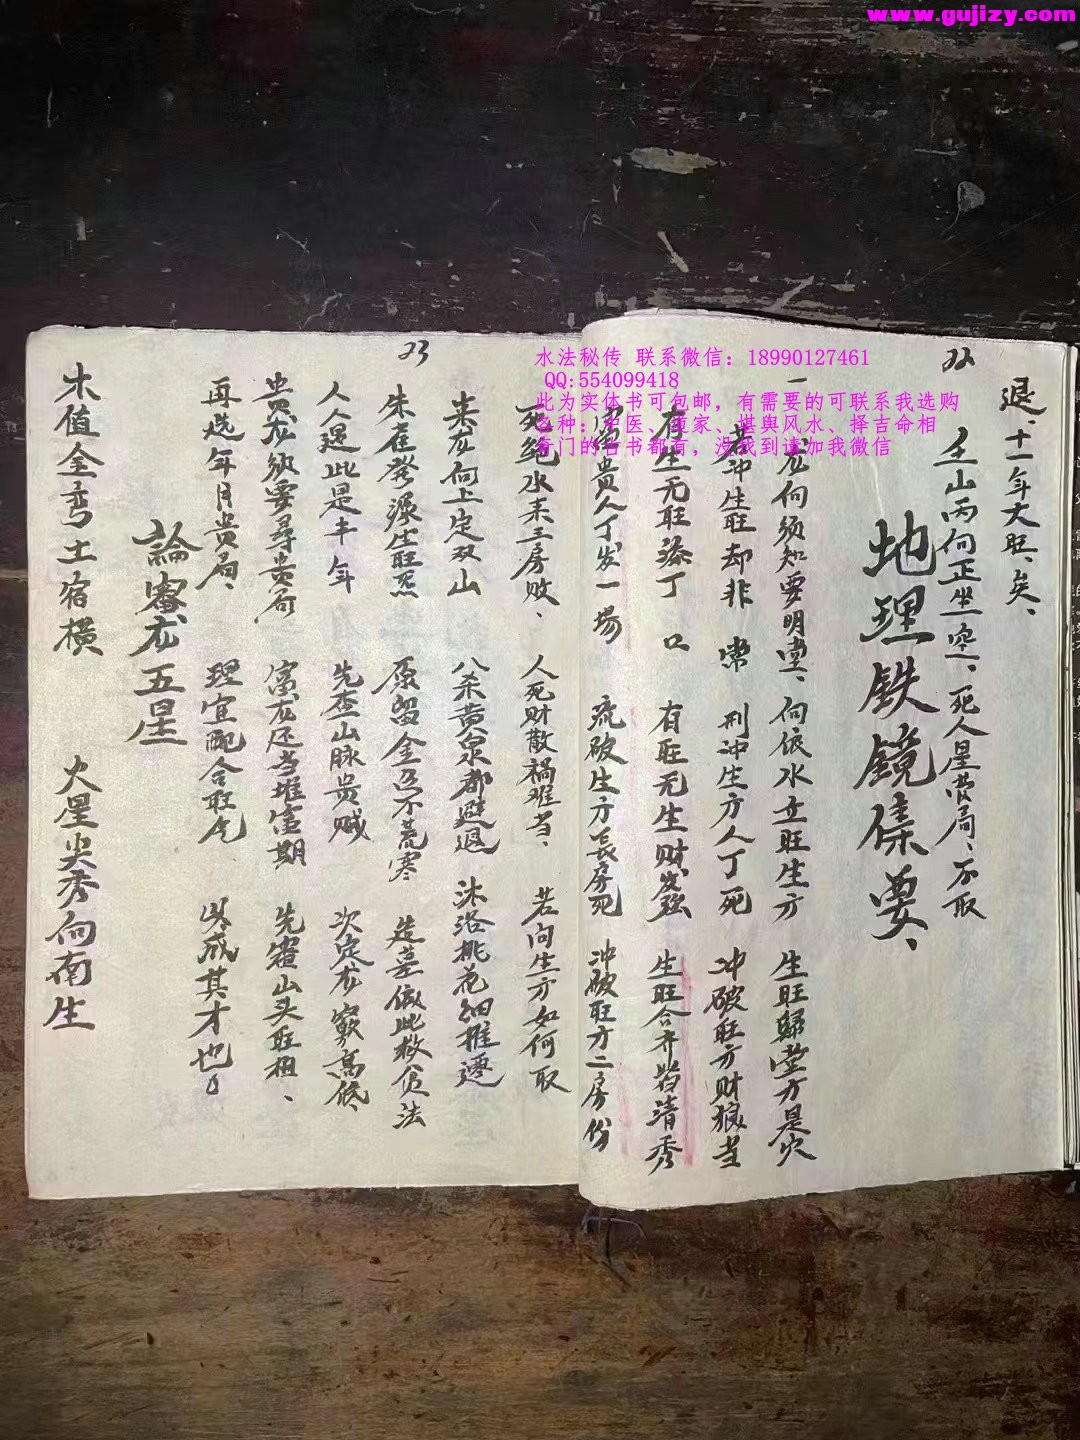 www.gujizy.com
水法秘传 联系微信：18990127461
QQ:554099418
此为实体书可包邮，有需要的可联系我选购
各种：中医、道家、堪舆风水、择吉命相
奇门的古书都有，没找到请加我微信
22
退、十一年大旺、矣、
壬山丙向正坐空、死人星贵局、不取
地理铁镜集要、
一龙何须知要明堂、向依水立旺生方 生旺歸堂方是穴
若冲生旺却非常 刑冲生方人丁死 冲破旺方财狼当
有生无旺添丁口 有旺无生财发强 生旺合齐皆清秀
富贵人丁发一场 流破生方長房死 冲破旺方二房份
23
死绝水来三房败、 人死财散禍难当、 若向生方如何取
来龙向上定双山 八杀黄泉都避退 沐浴桃花细推遷
朱雀發源生旺炁 原留金局不荒寒 造墓倣此救贫法
人人逞此是十年 先查山脉贵贼 次定龙竅高低、
贵龙须要尋贵局、 富龙还当堆富期 先審山头旺相、
再选年月贵局、 理宜配合旺气 以成其才也。
論審龙五星
火星尖秀向南生
木值金弯土宿横